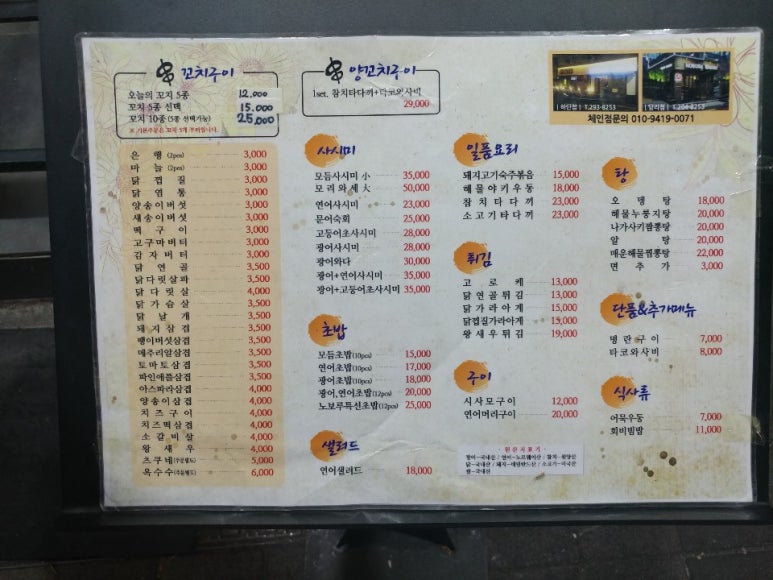 꼬치구이
오늘의 꼬치 5종 12,000
꼬치 5종 선택 15,000
꼬치 10종 (5종 선택가능) 25,000
은행 (2pcs) 3,000
마늘 (2pcs) 3,000
닭껍질 3,000
닭염통 3,000
양송이버섯 3,000
새송이버섯 3,000
떡구이 3,000
고구마버터 3,000
감자버터 3,000
닭연골 3,500
닭다릿살파 3,500
닭다릿살 4,000
닭가슴살 3,500
닭날개 3,500
돼지삼겹 3,500
팽이버섯삼겹 3,500
메추리알삼겹 3,500
토마토삼겹 3,500
파인애플삼겹 3,500
아스파라삼겹 4,000
양송이삼겹 4,000
치즈구이 4,000
치즈떡삼겹 4,000
소갈비살 4,000
왕새우 4,000
츠쿠네 5,000
옥수수 6,000
양꼬치구이
1set. 참치타다끼+타코와사비
29,000
사시미
모듬사시미 小 35,000
모리와세 大 50,000
연어사시미 23,000
문어숙회 25,000
고등어초사시미 28,000
광어사시미 28,000
광어와다 30,000
광어+연어사시미 35,000
광어+고등어초사시미 35,000
초밥
모듬초밥(10pcs) 15,000
연어초밥(10pcs) 17,000
광어초밥(10pcs) 18,000
광어,연어초밥(12pcs) 20,000
노보루특선초밥(12pcs) 25,000
샐러드
연어샐러드 18,000
일품요리
돼지고기숙주볶음 15,000
해물야키우동 18,000
참치타다끼 23,000
소고기타다끼 23,000
튀김
고로케 13,000
닭연골튀김 13,000
닭가라아게 15,000
닭껍질가라아게 15,000
왕새우튀김 19,000
구이
시사모구이 12,000
연어머리구이 20,000
원산지표기
쌀-국내산
하단점 T.293-8253
체인점문의 010-9419-0071
탕
오뎅탕 18,000
해물누룽지탕 20,000
나가사키짬뽕탕 20,000
알탕 20,000
매운해물짬뽕탕 22,000
면추가 3,000
단품&추가메뉴
명란구이 7,000
타코와사비 8,000
식사류
어묵우동 7,000
회비빔밥 11,000